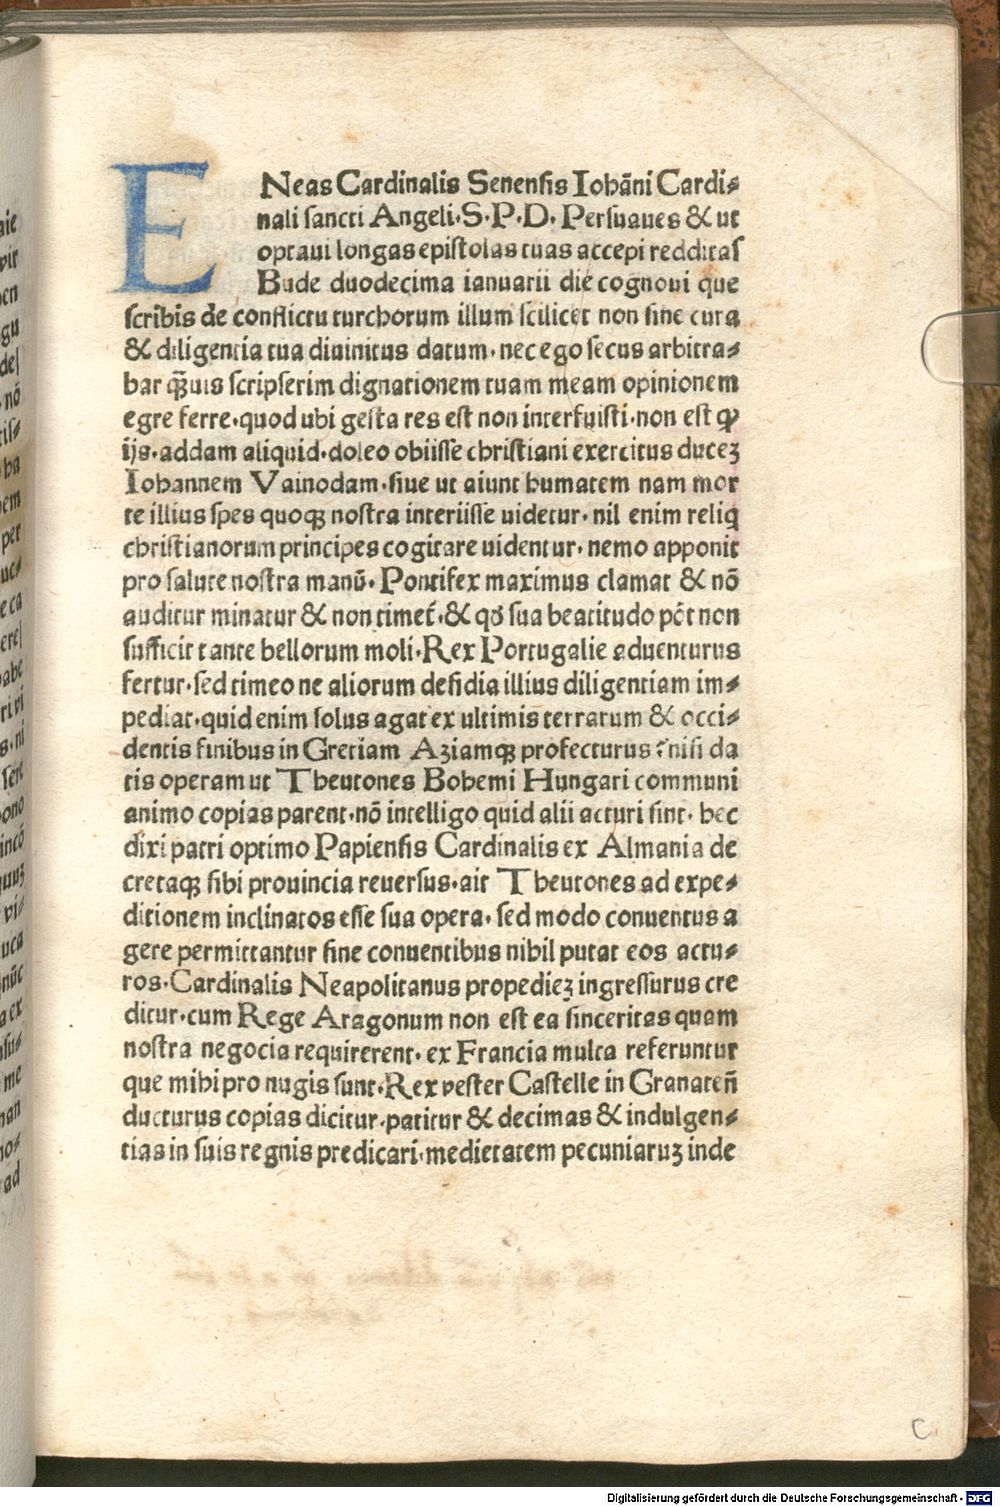 ENeas Cardinalis Senensis Iohāni Cardi-
nali sancti Angeli·S·P·D· Persuaues & ut
optaui longas epistolas tuas accepi redditas
Bude duodecima ianuarii die cognoui que
scribis de conflictu turchorum illum scilicet non sine cura
& diligentia tua diuinitus datum· nec ego secus arbitra-
bar qȝuis scripserim dignationem tuam meam opinionem
egre ferre·quod ubi gesta res est non interfuisti·non est ꝙ
ijs·addam aliquid·doleo obiisse christiani exercitus duceȝ
Iohannem Vainodam·siue ut aiunt humatem nam mor
te illius spes quoqȝ nostra interiisse uidetur· nil enim reliq
christianorum principes cogitare uidentur· nemo apponit
pro salute nostra manū· Pontifex maximus clamat & nō
auditur minatur & non timet·& qđ sua beatitudo pōt non
sufficit tante bellorum moli·Rex Portugalie aduenturus
fertur·sed timeo ne aliorum desidia illius diligentiam im-
pediat·quid enim solus agat ex ultimis terrarum & occi-
dentis finibus in Gretiam Aȝiamqȝ profecturus nisi da
tis operam ut Theutones Bohemi Hungari communi
animo copias parent·nō intelligo quid alii acturi sint· hec
dixi patri optimo Papiensis Cardinalis ex Almania de
cretaqȝ sibi prouincia reuersus·ait Theutones ad expe-
ditionem inclinatos esse sua opera· sed modo conuentus a
gere permittantur sine conuentibus nihil putat eos actu-
ros·Cardinalis Neapolitanus propedieȝ ingressurus cre
ditur·cum Rege Aragonum non est ea sinceritas quam
nostra negocia requirerent· ex Francia multa referuntur
que mihi pro nugis sunt·Rex vester Castelle in Granateñ
ducturus copias dicitur·patitur & decimas & indulgen-
tias in suis regnis predicari·medietatem pecuniaruȝ inde
C
Digitalisierung gefördert durch die Deutsche Forschungsgemeinschaft - DFG